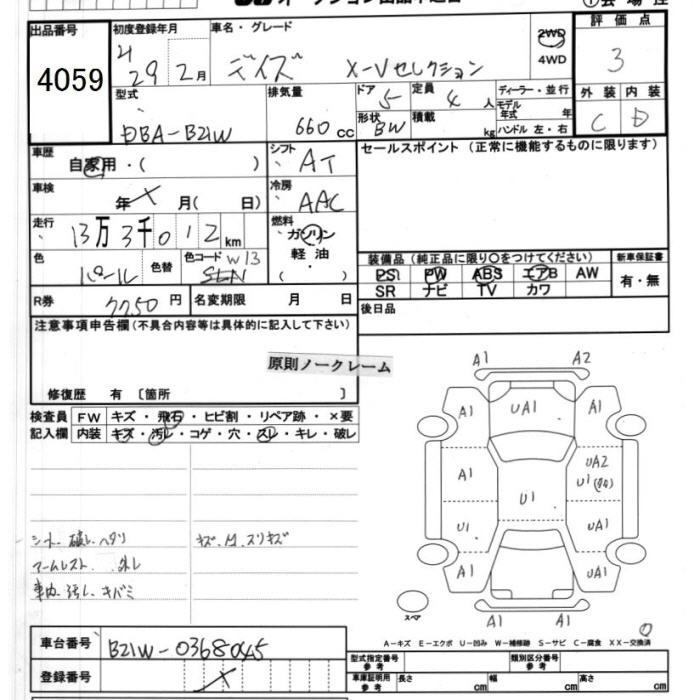 出品番号
4059
初度登録年月
H 29 2月
車名・グレード
デイズ X-Vセレクション
2WD
4WD
評価点
3
外装 内装
C D
型式
DBA-B21W
排気量
660 cc
ドア 5
形状 BW
定員 4 人
積載 kg
ディーラー・並行
モデル年式 年
ハンドル 左・右
車歴
自家用・( )
シフト AT
車検
年 月( 日)
冷房 AAC
走行
13万3千012km
燃料
ガソリン
軽油
( ・ )
色
パール
色替
色コード W13
R券 7750円
名変期限 月 日
セールスポイント (正常に機能するものに限ります)
装備品 (純正品に限り〇をつけてください)
PS PW ABS エアB AW
SR ナビ TV カワ
新車保証書
有・無
後日品
注意事項申告欄 (不具合内容等は具体的に記入して下さい)
原則ノークレーム
修復歴 有 〔箇所 〕
検査員記入欄
FW キズ・飛石・ヒビ割・リペア跡・×要
内装 キズ・汚レ・コゲ・穴・スレ・キレ・破レ
シート 破レ ヘタリ
アームレスト 外レ
車内 汚レ キバミ
キズ、凹、スリキズ
A1 A2
A1 UA1 A1
A1 UA2
U1
U1
U1 UA1
A1 UA1
A1 A1
スペア
0
A-キズ E-エクボ U-凹み W-補修跡 S-サビ C-腐食 XX-交換済
車台番号
B21W-0368045
登録番号
型式指定番号 参考
類別区分番号 参考
車庫証明用 参考
長さ cm
幅 cm
高さ cm